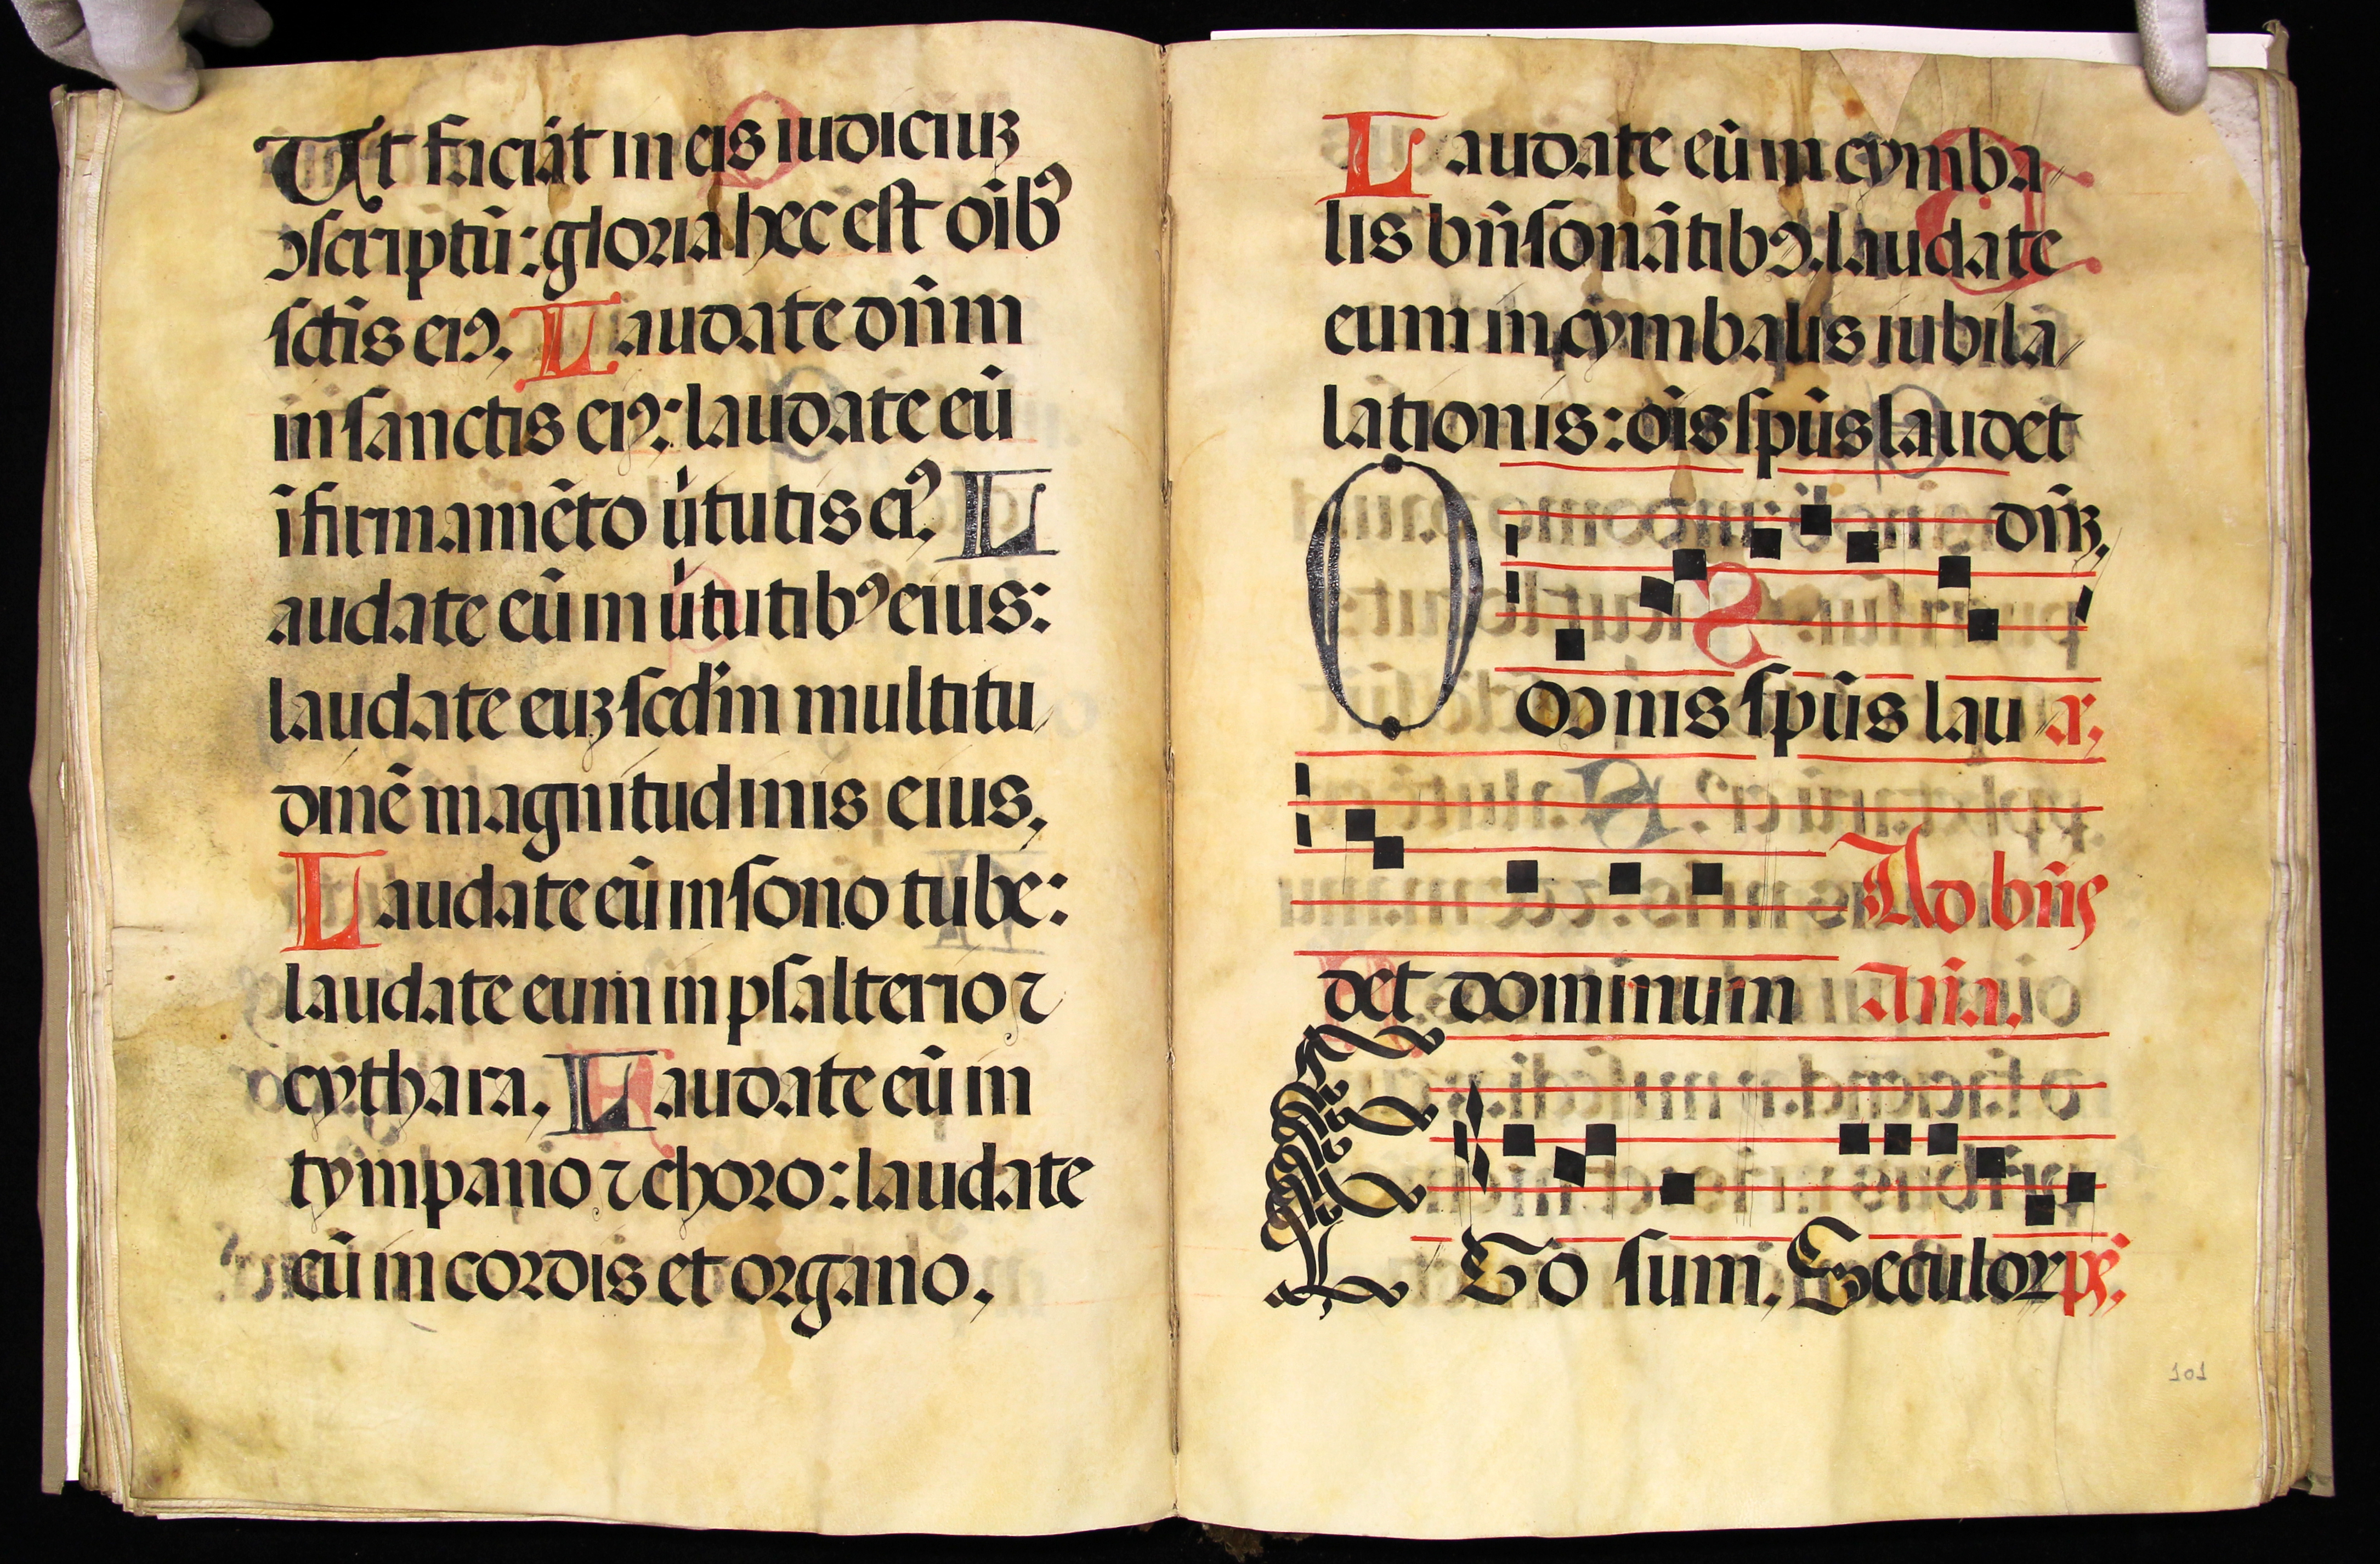 Ut faciāt in eis iudiciuꝫ
ꝯscriptū: gloria hec est oībꝰ
sctīs eiꝰ. Laudate dn̄m
in sanctis eiꝰ: laudate eū
ī firmamēto v̄tutis eiꝰ. L
audate eū in v̄tutibꝰ eius:
laudate euꝫ scd̄m multitu
dinē magnitudinis eius.
Laudate eū in sono tube:
laudate eum in psalterio ⁊
cythara. Laudate eū in
tympano ⁊ choro: laudate
eū in cordis et organo.
Laudate eū in cymba
lis bn̄sonātibꝰ. laudate
eum in cymbalis iubila
lationis: oīs spūs laudet
dn̄ꝫ.
Omnis spūs lau a.
Ad bn̄s
det dominum An̄a.
Ego sum. Seculor ps.
101